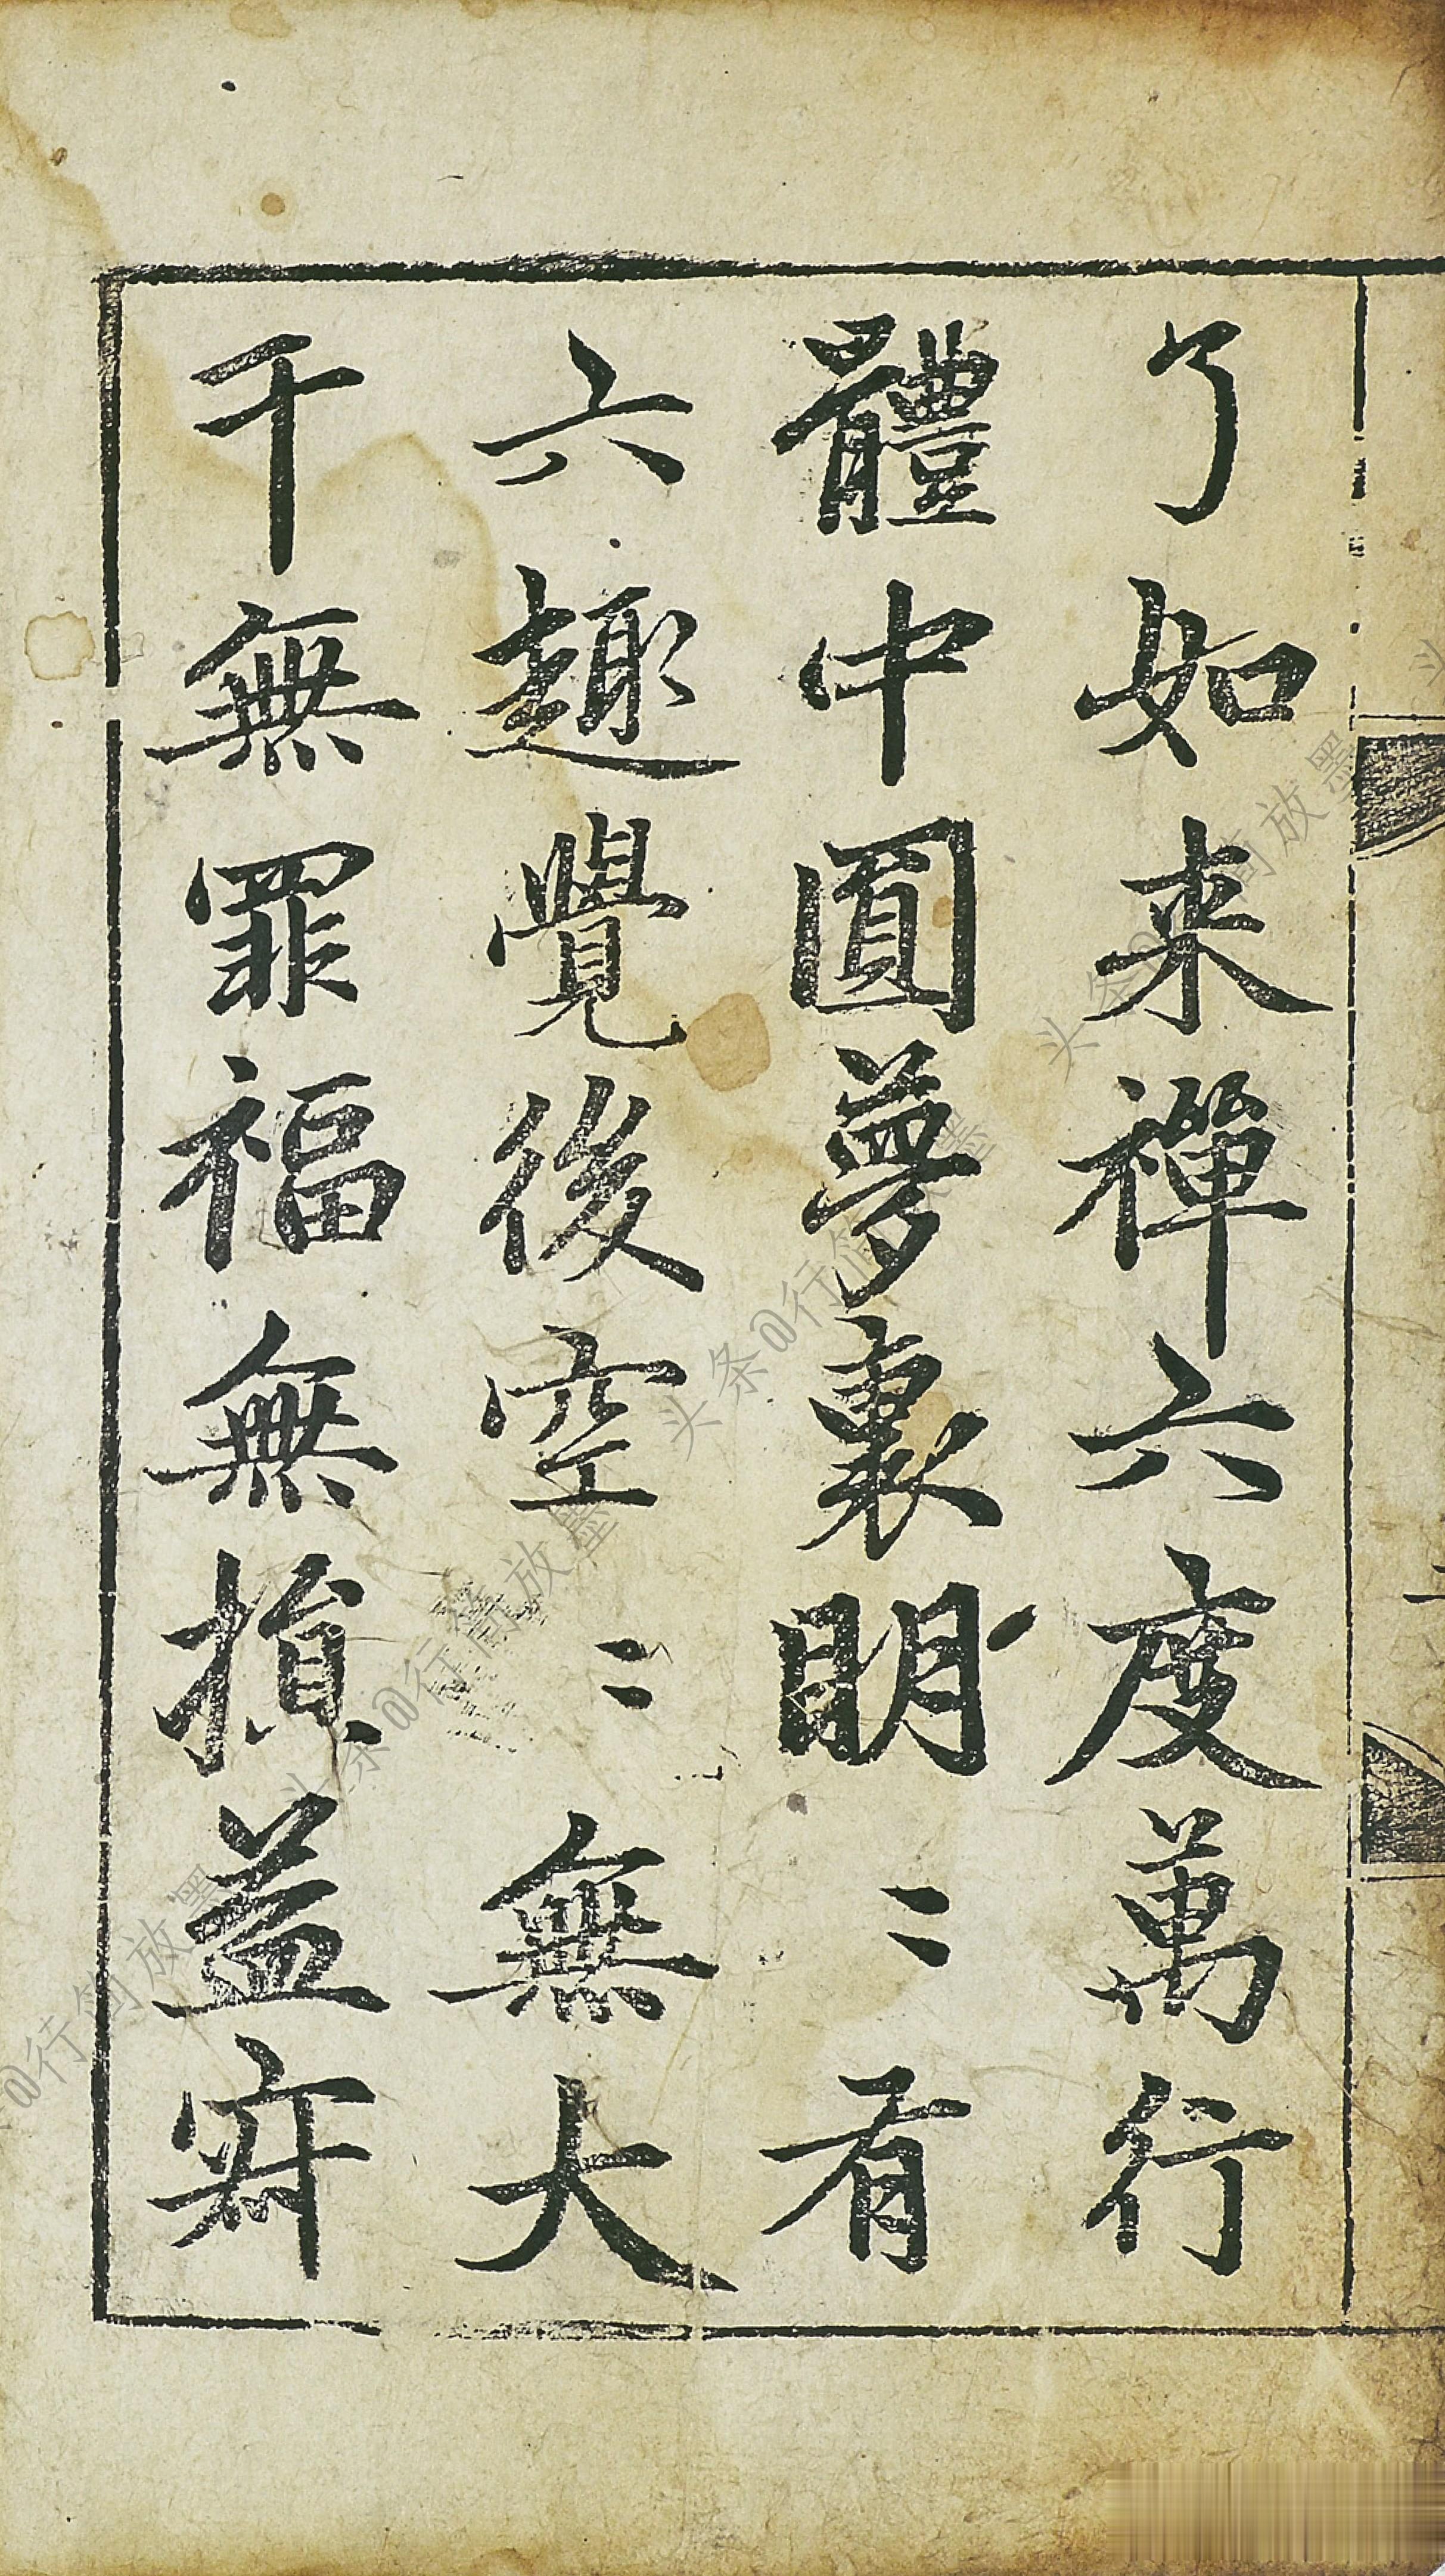 了如来禪六度萬行
體中圓夢裏明〻有
六趣覺後空〻無大
千無罪福無損益㝛
头条@行简放墨
头条@行简放墨
头条@行简放墨
@行简放墨